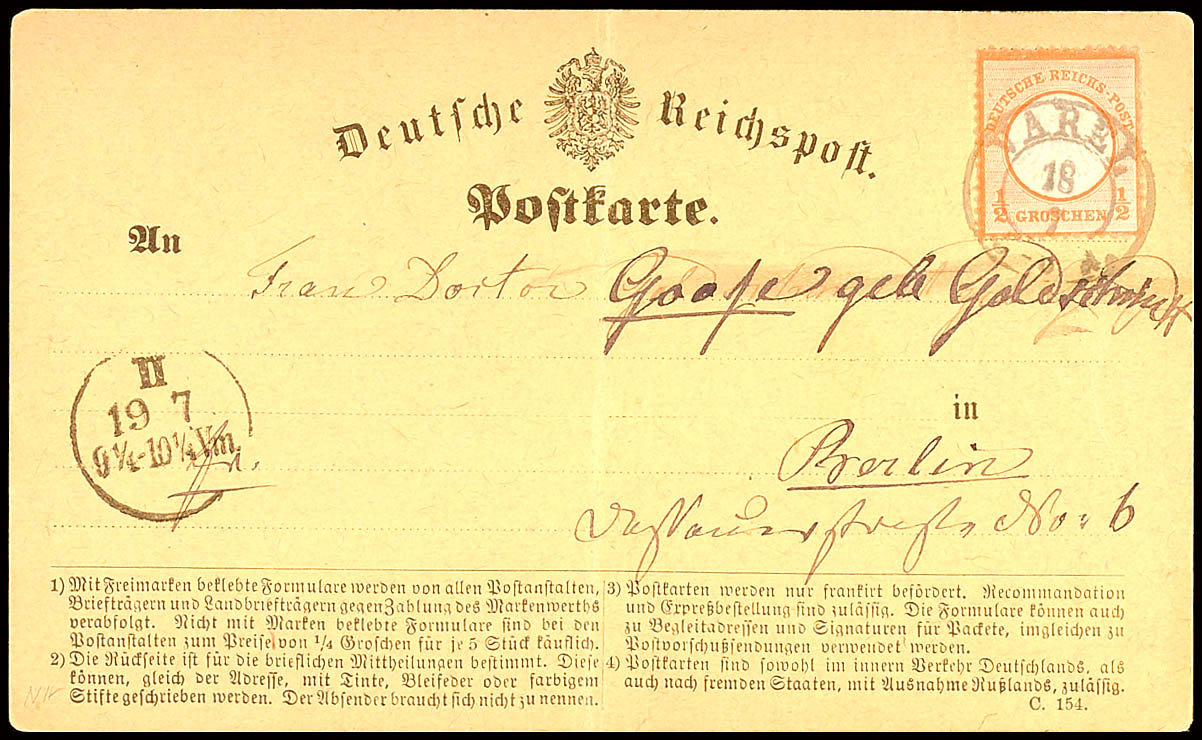 Deutsche Reichspost.
Postkarte.
DEUTSCHE REICHS-POST
½ GROSCHEN ½
18
7
An
Frau Doctor Goose geb Goldschmidt
II
19 7
9¼-10¼ Vm.
in
Berlin
Dessauerstrasse No 6
1) Mit Freimarken beklebte Formulare werden von allen Postanstalten,
Briefträgern und Landbriefträgern gegen Zahlung des Markenwerths
verabfolgt. Nicht mit Marken beklebte Formulare sind bei den
Postanstalten zum Preise von 1/4 Groschen für je 5 Stück käuflich.
2) Die Rückseite ist für die brieflichen Mittheilungen bestimmt. Diese
können, gleich der Adresse, mit Tinte, Bleifeder oder farbigem
Stifte geschrieben werden. Der Absender braucht sich nicht zu nennen.
3) Postkarten werden nur frankirt befördert. Recommandation
und Expreßbestellung sind zulässig. Die Formulare können auch
zu Begleitadressen und Signaturen für Packete, imgleichen zu
Postvorschußsendungen verwendet werden.
4) Postkarten sind sowohl im innern Verkehr Deutschlands, als
auch nach fremden Staaten, mit Ausnahme Rußlands, zulässig.
C. 154.